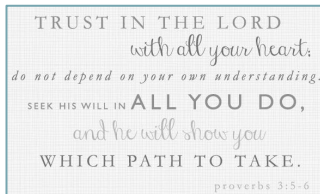 TRUST IN THE LORD
with all your heart;
do not depend on your own understanding.
SEEK HIS WILL IN ALL YOU DO,
and he will show you
WHICH PATH TO TAKE.
proverbs 3:5-6